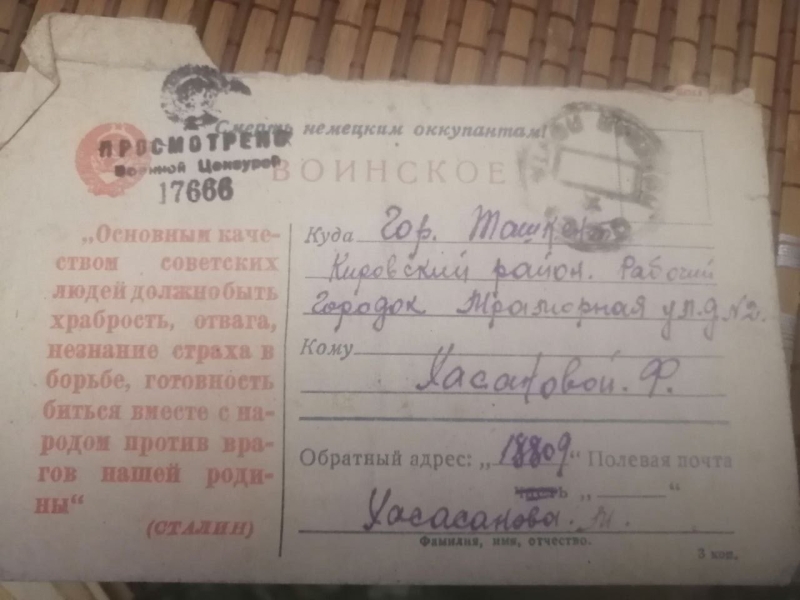 Смерть немецким оккупантам!
ПРОСМОТРЕНО
Военной Цензурой
17666
ВОИНСКОЕ
„Основным каче-
ством советских
людей должно быть
храбрость, отвага,
незнание страха в
борьбе, готовность
биться вместе с на-
родом против вра-
гов нашей роди-
ны“
(СТАЛИН)
Куда Гор. Ташкент
Кировский район. Рабочий
городок Мраморная ул. д №2.
Кому
Хасановой. Ф.
Обратный адрес: „18809“ Полевая почта
часть „ “
Хасасанова. М.
Фамилия, имя, отчество.
3 коп.